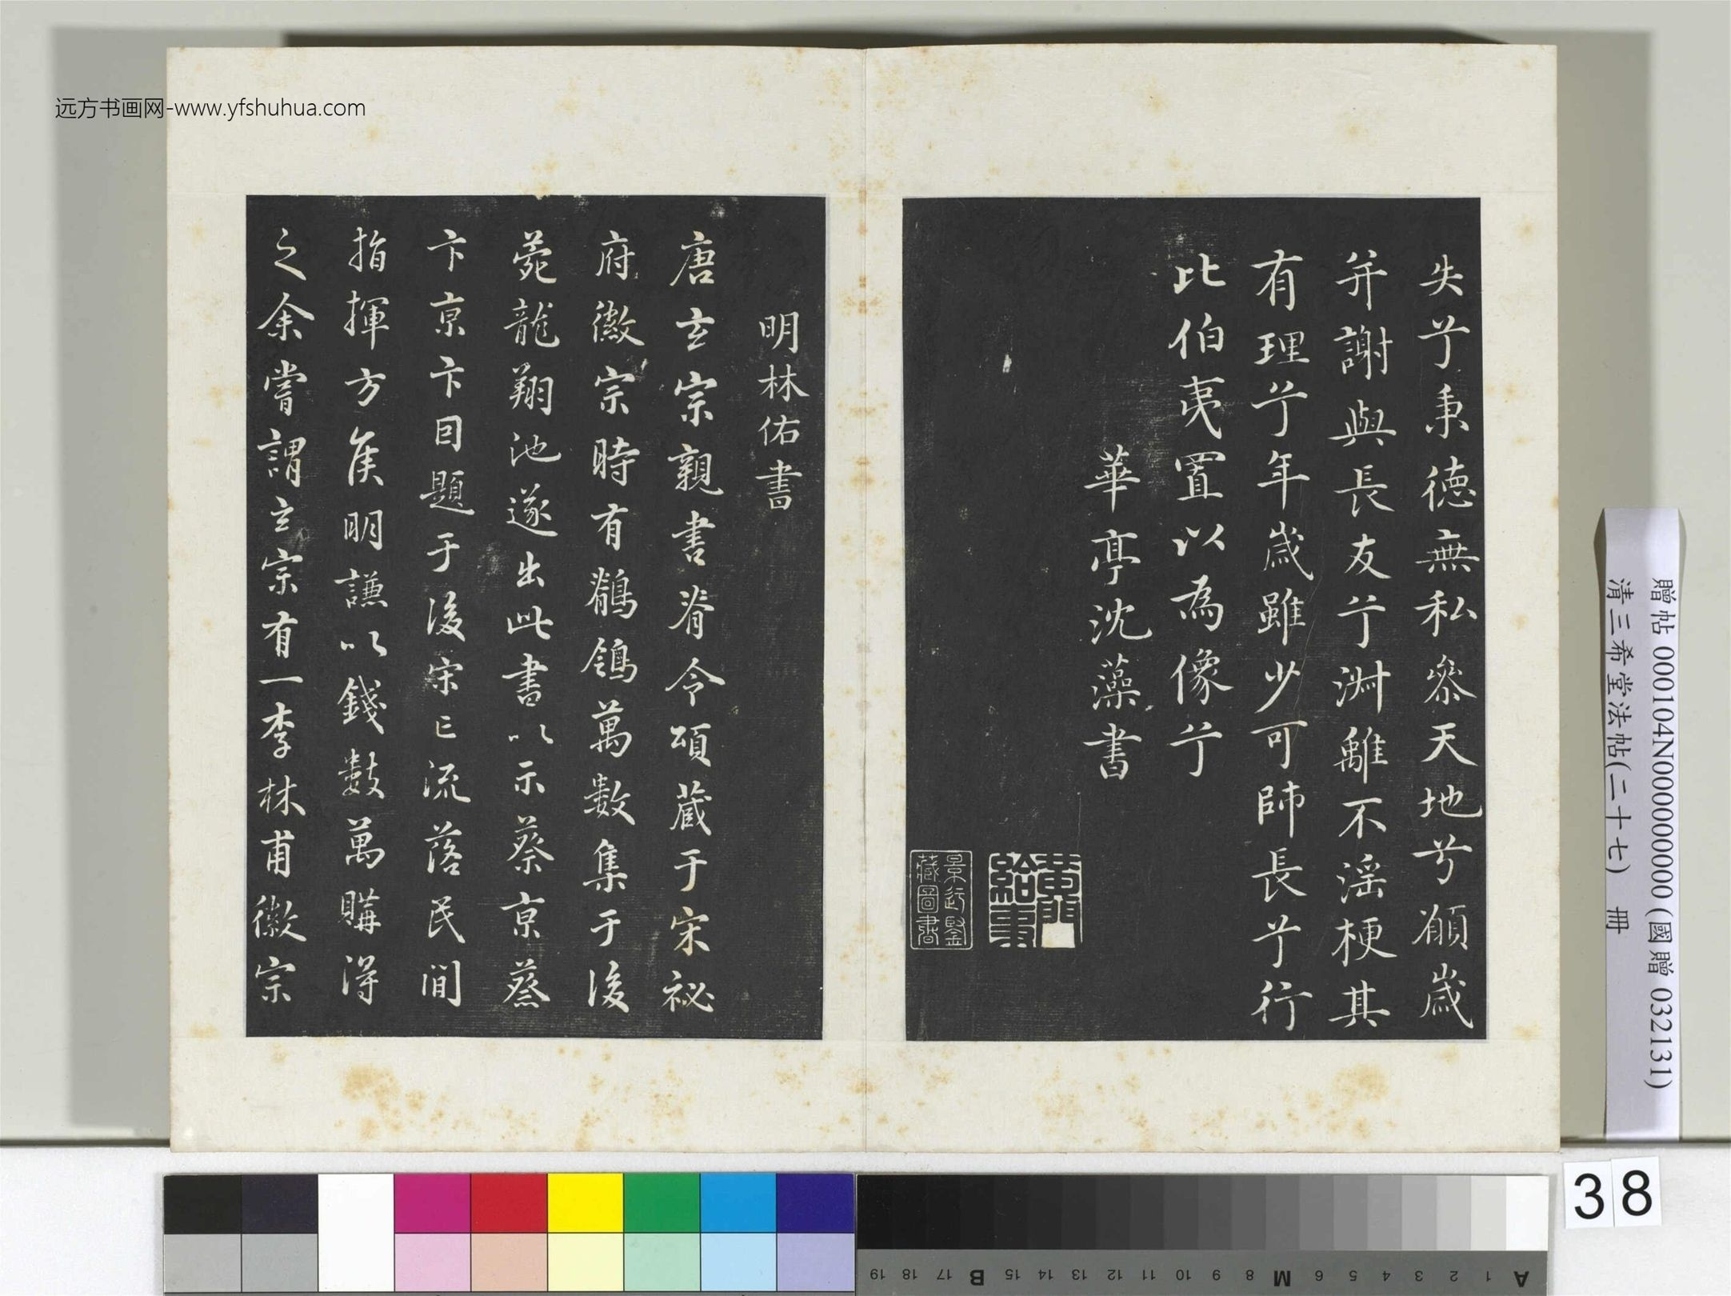 远方书画网-www.yfshuhua.com
失兮秉德無私叅天地兮願歲
并謝與長友兮淑離不淫梗其
有理兮年歲雖少可師長兮行
比伯夷置以為像兮
華亭沈藻書
東門給事
景行鑒藏圖書
明林佑書
唐玄宗親書脊令頌蔵于宋祕
府徽宗時有鶺鴒萬数集于後
菀龍翔池遂出此書以示蔡京蔡
卞京卞目題于後宋亡流落民間
指揮方侯明謙以錢數萬購得
之余嘗謂玄宗有一李林甫徽宗
贈帖 000104N000000000 (國贈 032131)
清三希堂法帖(二十七) 冊
38
19 18 17 B 16 15 14 13 12 11 10 9 8 M 7 6 5 4 3 2 1 A